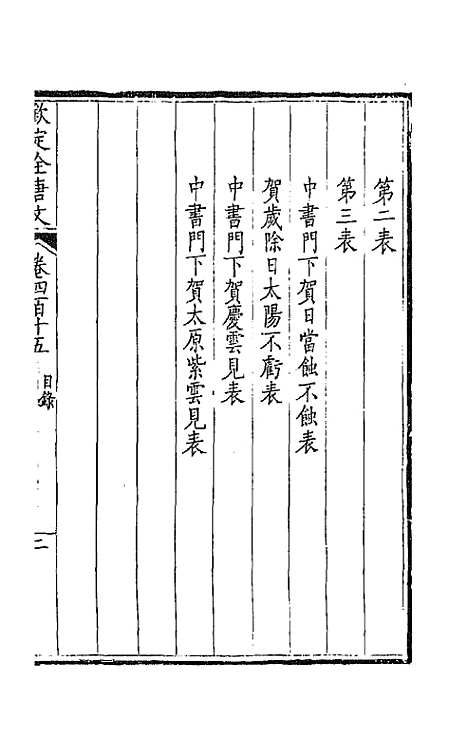 第二表
第三表
中書門下賀日當蝕不蝕表
賀歲除日太陽不虧表
中書門下賀慶雲見表
中書門下賀太原紫雲見表
欽定全唐文 卷四百十五 目錄 二